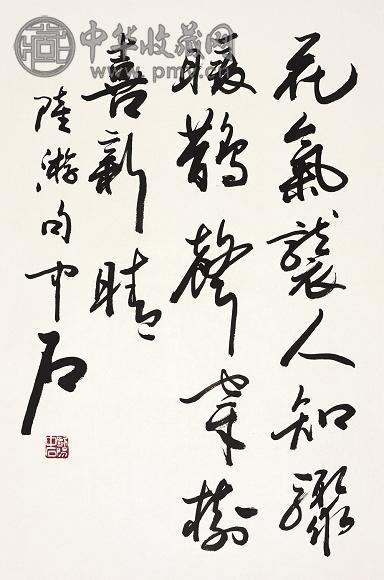 花氣襲人知驟
暖鵲聲穿樹
喜新晴
陸游句中石
中华收藏网
www.pmyc.cn